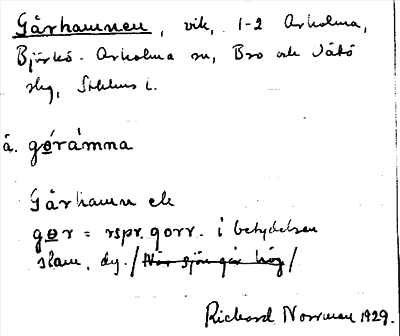 Gårhamnen, vik, 1-2 Arholma,
Björkö-Arholma sn, Bro och Vätö
slg, Sthlms l.
å. gɵ́rámna
Gårhamn el.
gɵr = rspr. gorr. i betydelsen
slam, dy. /När sjön går hög/
Richard Norrman 1929.